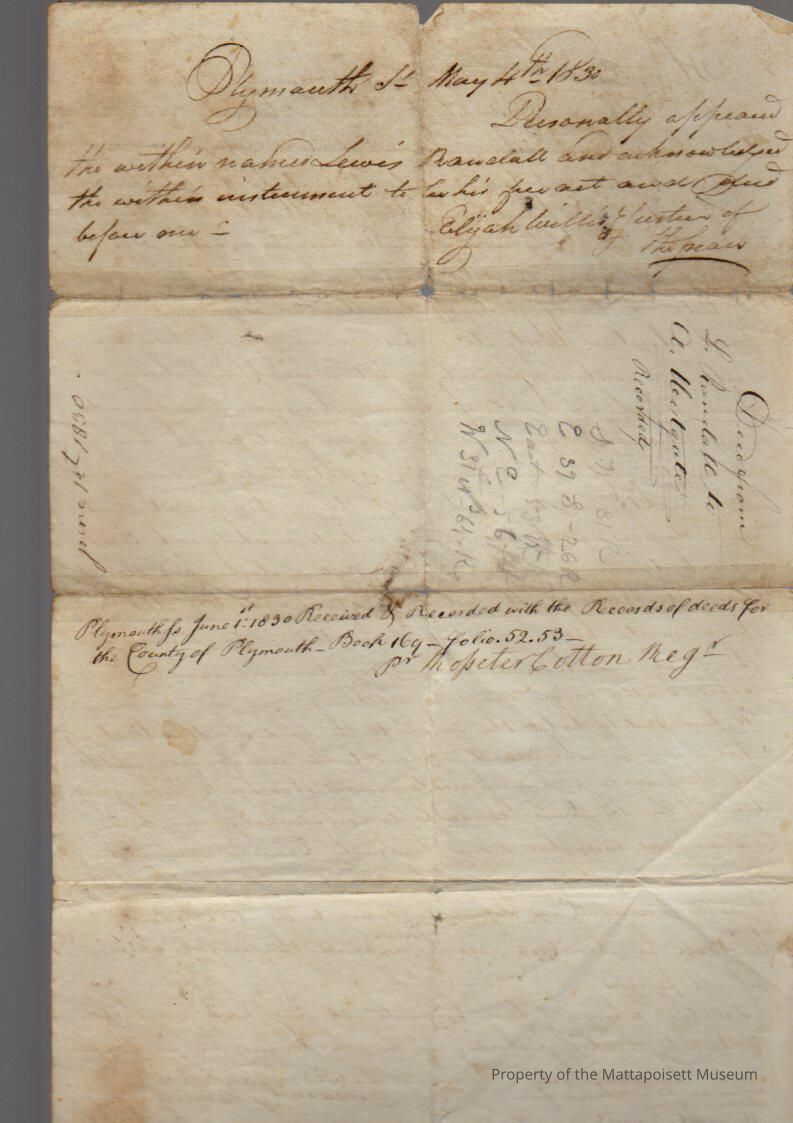 Plymouth Ss May 4th 1830
Personally appeard
the within named Lewis Randall and acknowledged
the within instrument to be his free act and Deed
before me - Elijah Willis Justice of
the peace
Deed from
L. Randall to
A.
Recorded
S W 31 R
E 39 S - 26 R
East 53 R
N E - 56
N 31 W 64 R
June 1st 1830
Plymouth ss June 1st: 1830 Received & Recorded with the Records of deeds for
the County of Plymouth - Book 169 - folio. 52. 53 -
pr Rosseter Cotton Regr
Property of the Mattapoisett Museum